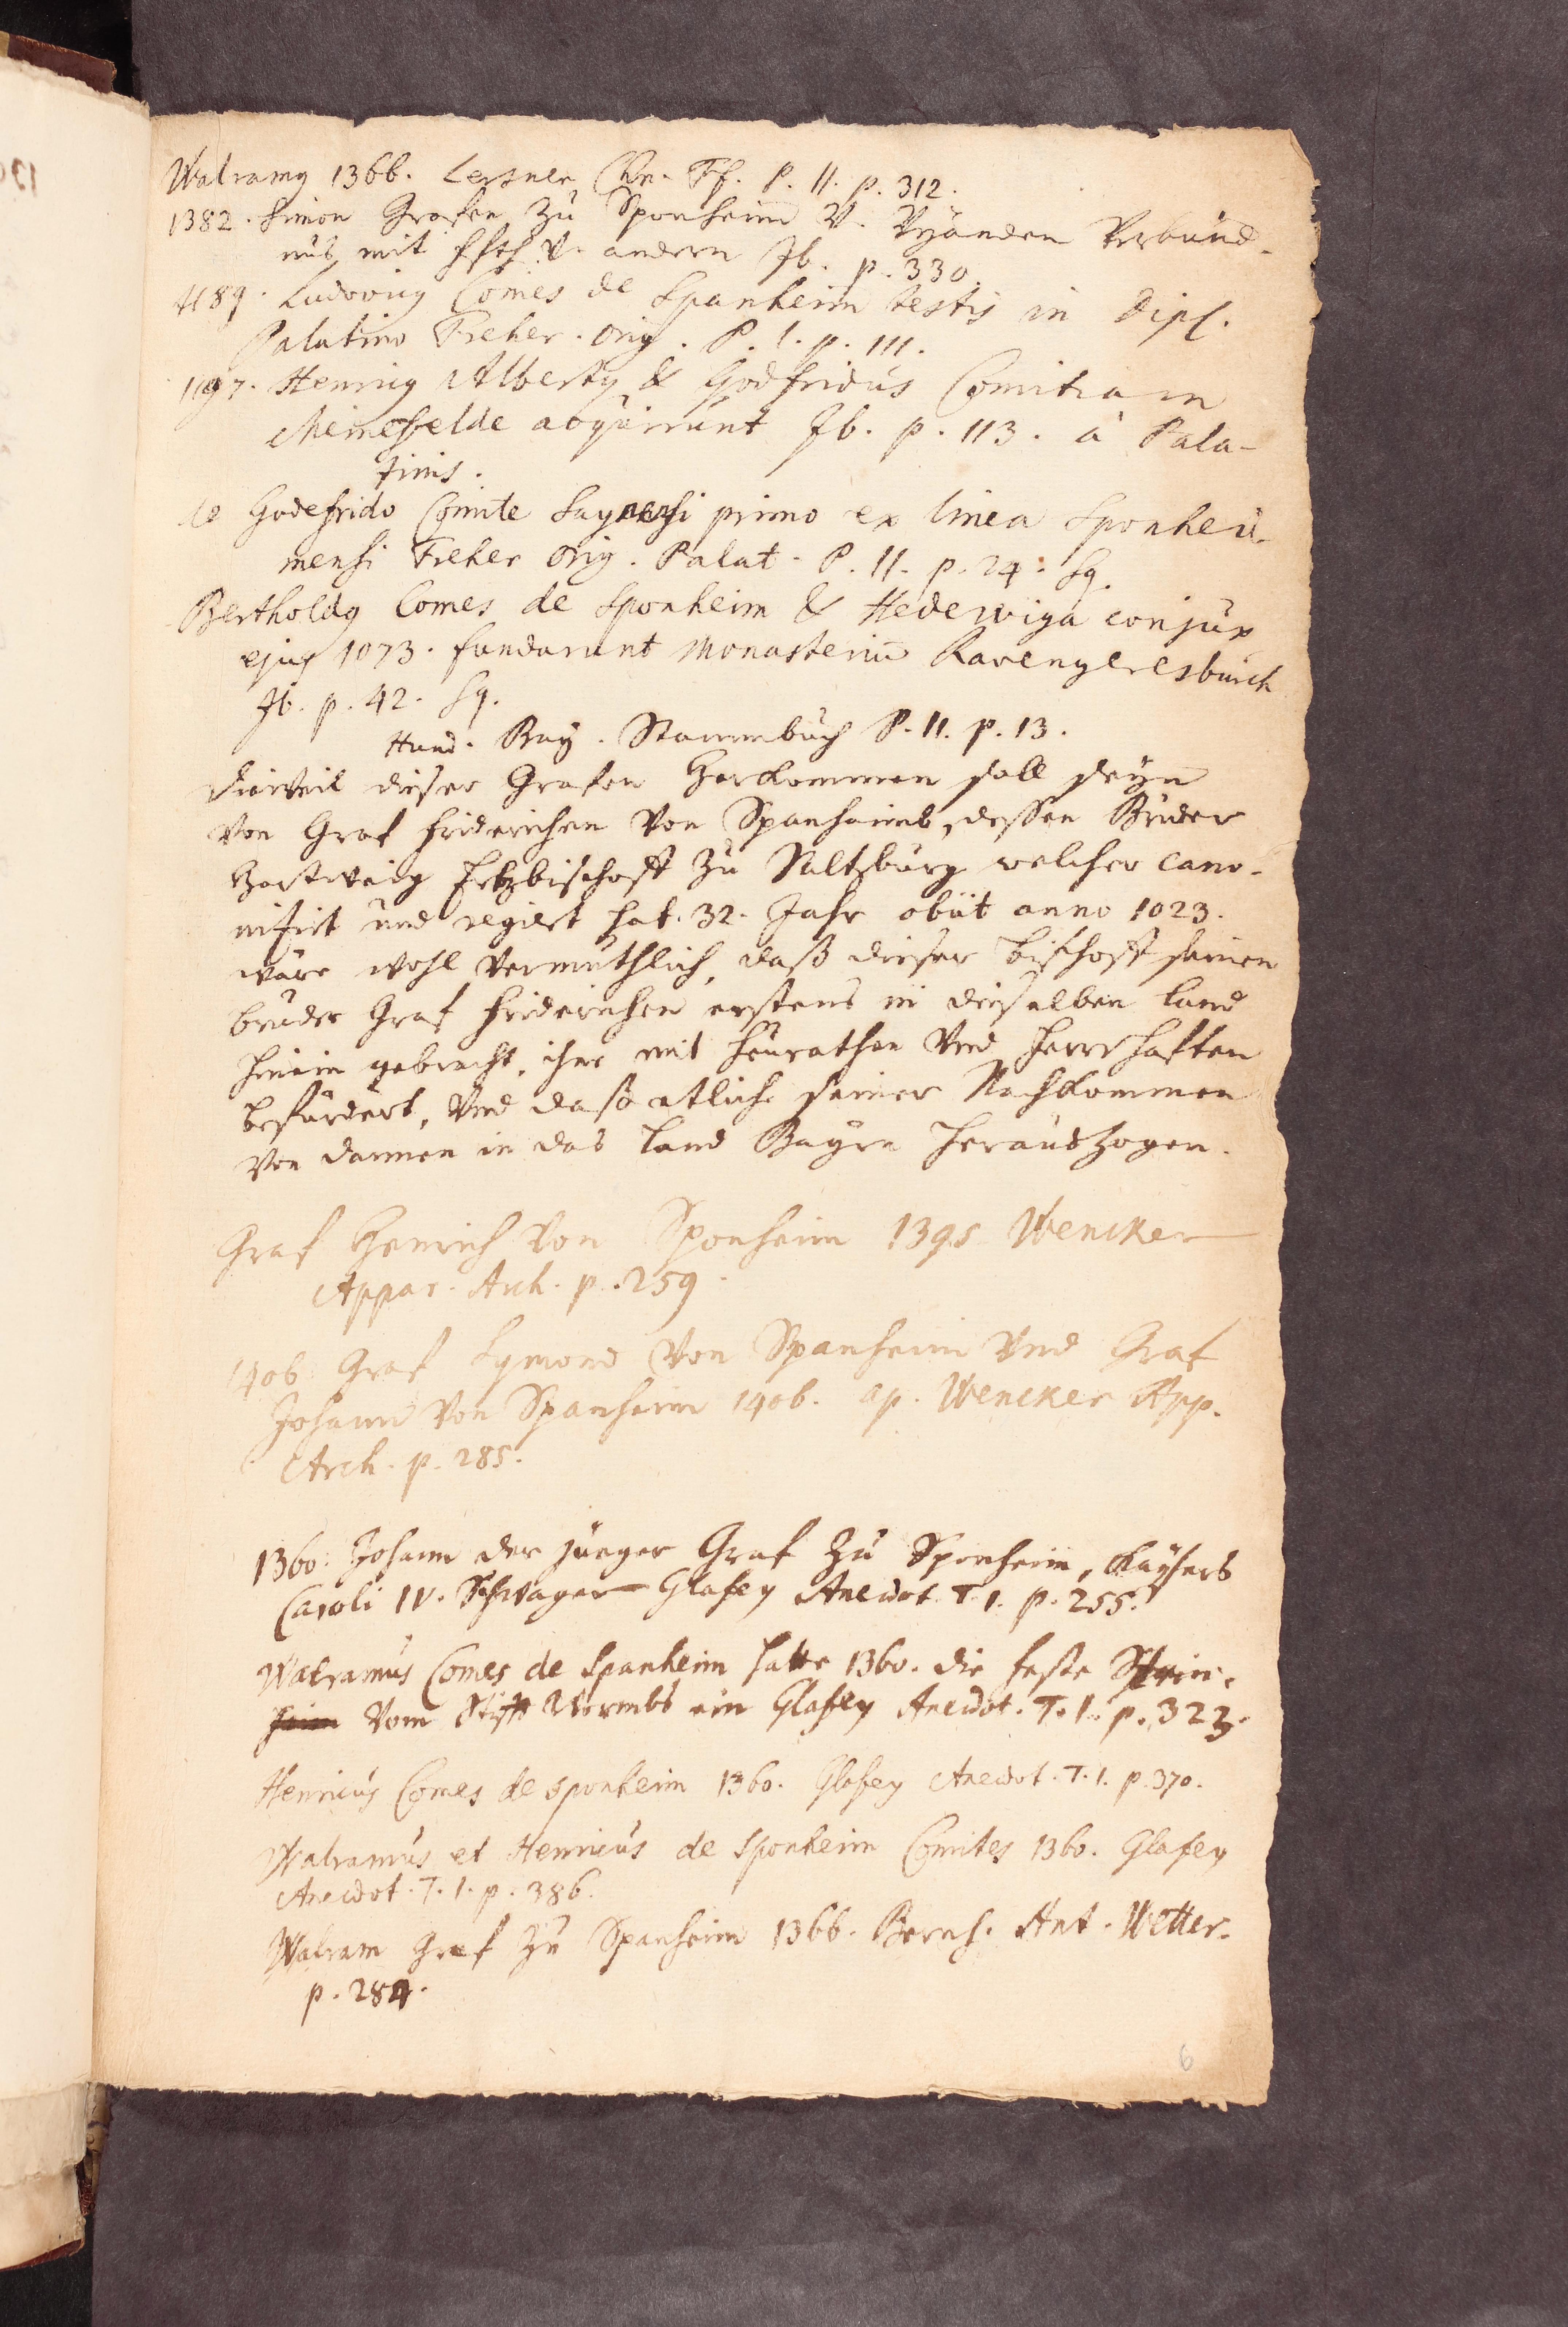 Walramus 1366. Lersner Chr. Ff. P. II. p. 312.
1382. Simon Grafen zu Sponheim v. Vyanden Verbünd-
nus mit v. andern Ib. p. 330.
1189. Ludovicus Comes de Spanheim testis in Dipl.
Palatino Freher. Orig. P. I. p. 111.
1197. Henricus Albertus & Godfridus Comitiam
Meinefelde acquirunt Ib. p. 113. à Pala-
tinis.
de Godefrido Comite Saynensi primo ex linea Sponhei-
mensi Freher Orig. Palat. P. II. p. 24. sq.
Bertholdus Comes de Sponheim & Hedewiga conjux
ejus 1073. fundarunt Monasterium Ravengeresburch
Ib. p. 42. sq.
Hund. Bay. Stammbuch P. II. p. 13.
Dieweil dieser Grafen Herkommen soll seyn
von Graf Friderichen von Spanhaimb, dessen Bruder
Hartweig Ertzbischoff zu Saltzburg welcher cano-
nisirt und regiert hat. 32. Jahr obiit anno 1023.
wäre wohl vermuthlich, daß dieser Bischoff seinen
bruder Graf Friderichen erstens in dieselben Land
hinein gebracht, ihne mit Heurathen vnd Herrschafften
befürdert, vnd daß etliche seiner Nachkommen
von dannen in das Land Bayrn herauszogen.
Graf Henrich von Sponheim 1395 Wencker
Appar. Arch. p. 259.
1406 Graf Symond von Spanheim vnd Graf
Johann von Spanheim 1406. ap. Wencker App.
Arch. p. 285.
1360. Johann der jünger Graf zu Sponheim, Kaysers
Caroli IV. Schwager Glafey Anecdot. T. I. p. 255.
Walramus Comes de Spanheim hatte 1360. die feste Stein-
heim vom Stifft Wormbs ein Glafey Anecdot. T. I. p. 323.
Henricus Comes de Sponheim 1360. Glafey Anecdot. T. I. p. 370.
Walramus et Henricus de Sponheim Comites 1360. Glafey
Anecdot. T. I. p. 386.
Walram Graf zu Spanheim 1366. Bernh. Ant. Wetter.
p. 284.
6